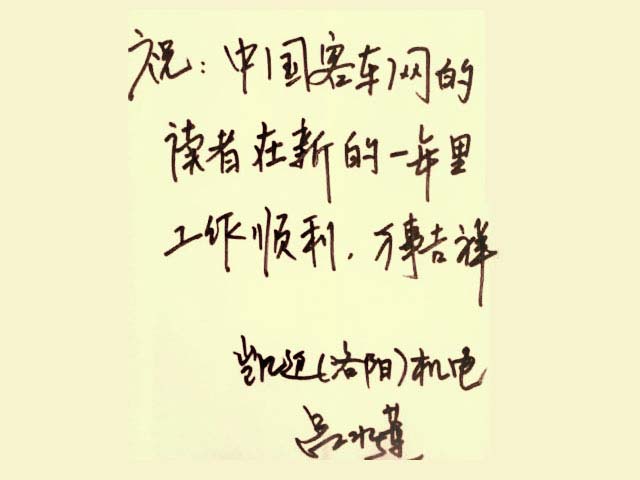 祝：中国客车网的
读者在新的一年里
工作顺利，万事吉祥
凯迈（洛阳）机电
吕冰